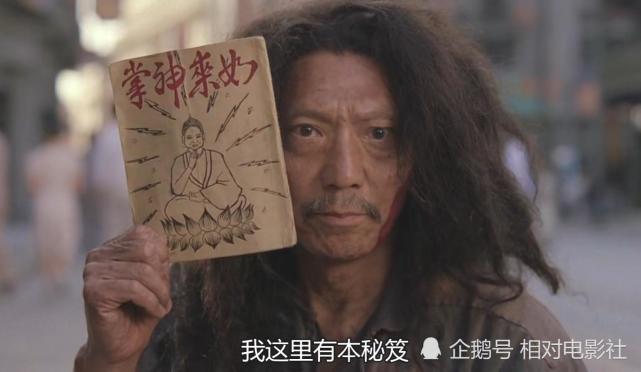 如来神掌
我这里有本秘笈
企鹅号 相对电影社